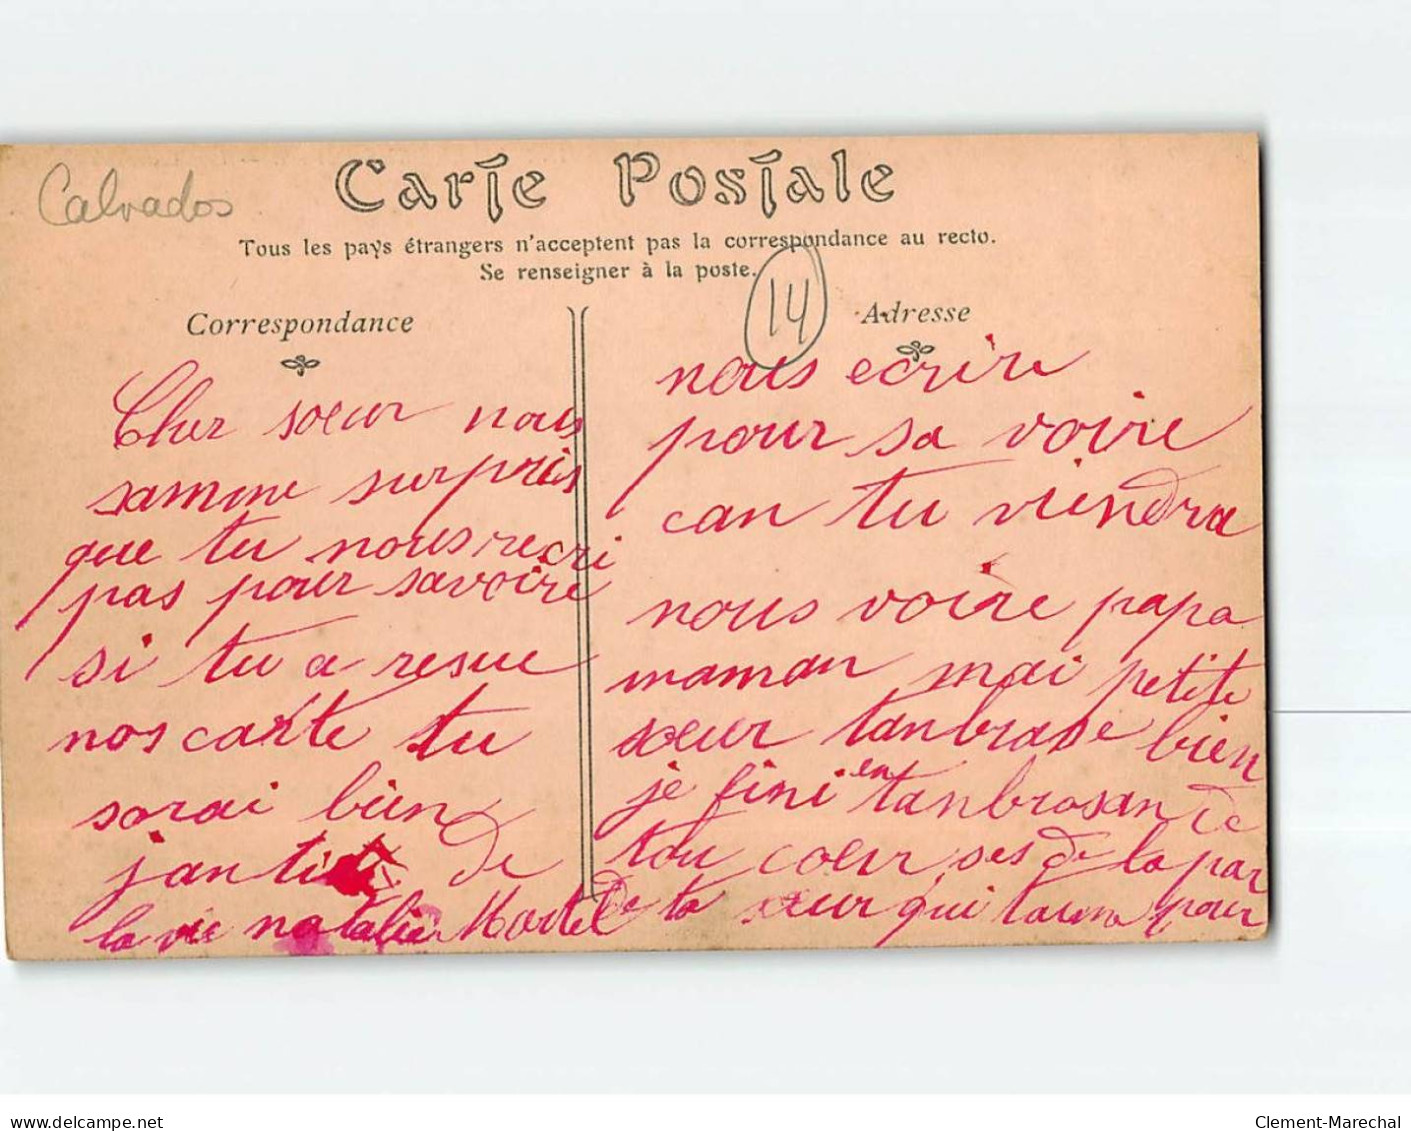 Calvados
Carte Postale
Tous les pays étrangers n'acceptent pas la correspondance au recto.
Se renseigner à la poste.
14
Correspondance
Cher sœur nous
samme surpris
que tu nous recri
pas pour savoire
si tu a resue
nos carte tu
sorai bien
jantit de
Adresse
nous ecrire
pour sa voire
can tu viendra
nous voire papa
maman mai petite
sœur tanbrase bien
je fini en tanbrasan de
tou cœur ses de la par
de ta sœur qui taime pour
la vie natalie Martel
www.delcampe.net
Clement-Marechal